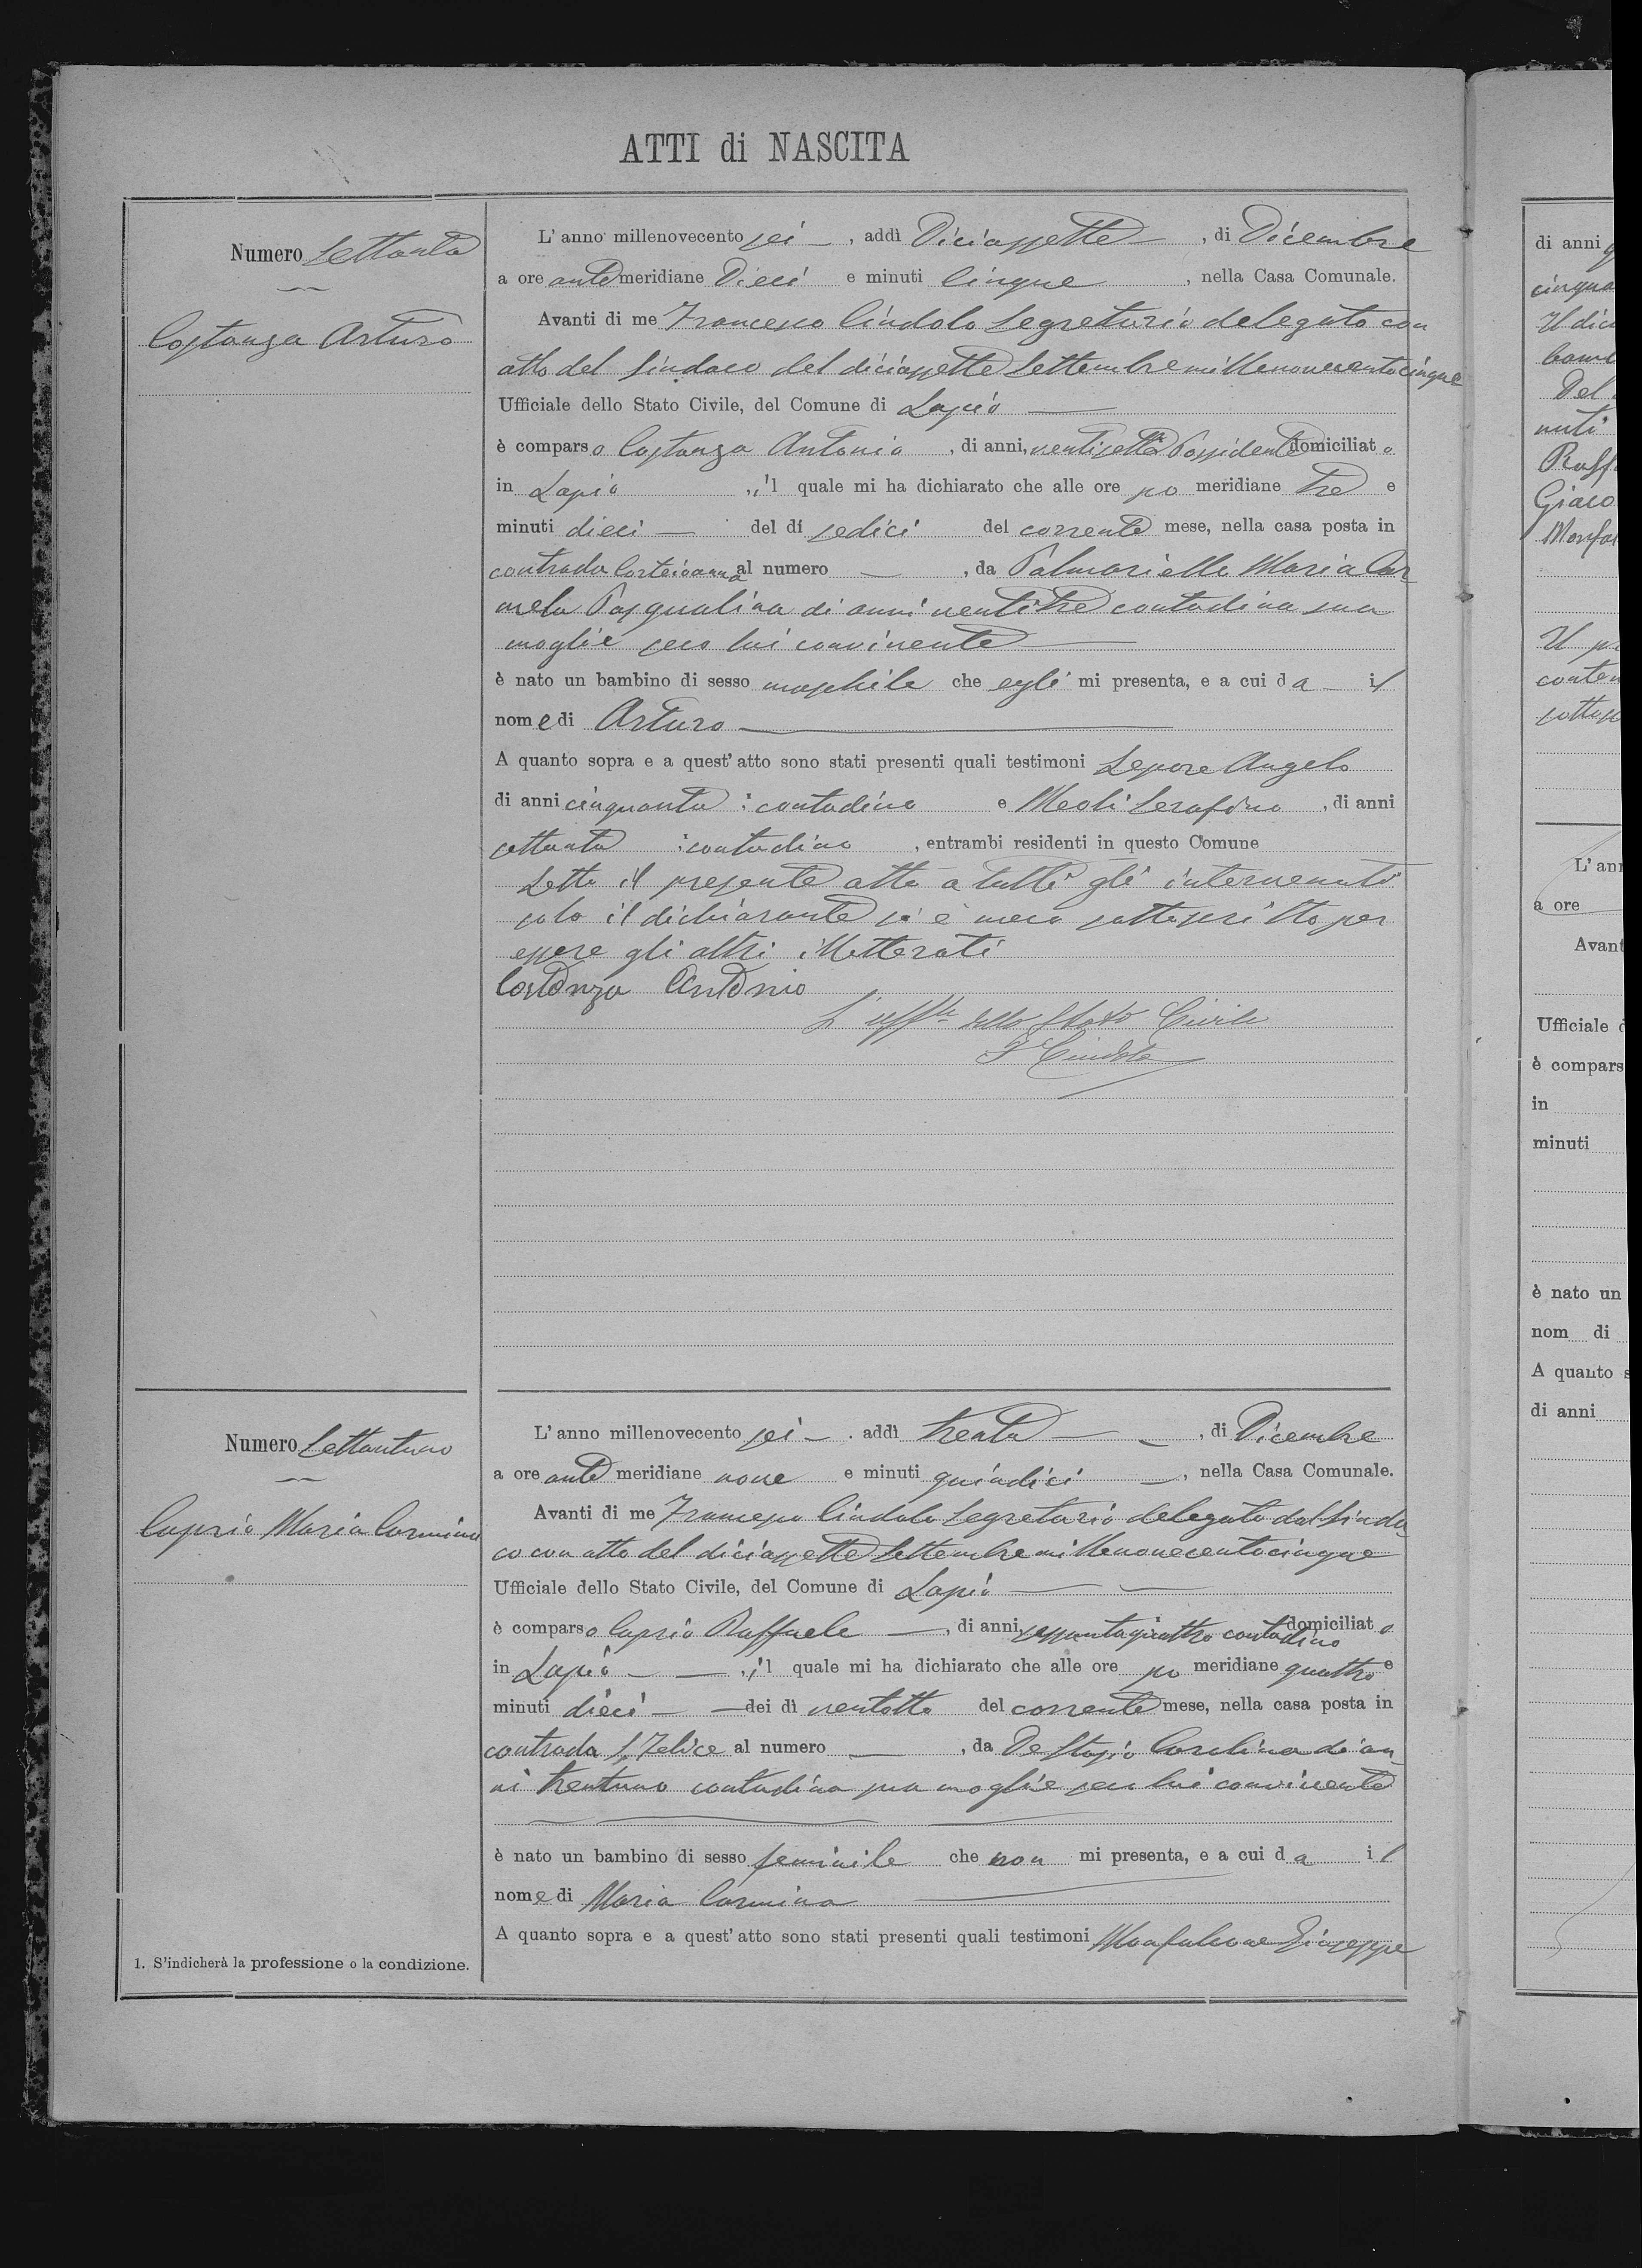 ATTI di NASCITA
Numero Settanta
Costanza Arturo
L'anno millenovecento sei, addì Diciassette, di Dicembre
a ore ante meridiane Dieci e minuti cinque, nella Casa Comunale.
Avanti di me Francesco Cindolo Segretario delegato con
atto del Sindaco del diciassette Settembre millenovecentocinque
Ufficiale dello Stato Civile, del Comune di Lapio
è comparso Costanza Antonio, di anni, ventisette Possidente domiciliato
in Lapio, il quale mi ha dichiarato che alle ore po meridiane tre e
minuti dieci del dì sedici del corrente mese, nella casa posta in
contrada al numero, da Palmariello Maria Car
mela Pasqualina di anni ventitre contadina sua
moglie seco lui convivente
è nato un bambino di sesso maschile che egli mi presenta, e a cui da il
nome di Arturo
A quanto sopra e a quest'atto sono stati presenti quali testimoni Lepore Angelo
di anni cinquanta contadino e Meoli Serafino, di anni
settanta contadino, entrambi residenti in questo Comune
Letto il presente atto a tutti gli intervenuti
solo il dichiarante si è meco sottoscritto per
essere gli altri illetterati
Costanza Antonio
L'uffle dello Stato Civile
F Cindolo
Numero Settantuno
Caprio Maria Carmina
L'anno millenovecento sei, addì trenta, di Dicembre
a ore ante meridiane nove e minuti quindici, nella Casa Comunale.
Avanti di me Francesco Cindolo Segretario delegato dal Sinda
co con atto del diciassette Settembre millenovecentocinque
Ufficiale dello Stato Civile, del Comune di Lapio
è comparso Caprio Raffaele, di anni, contadino domiciliato
in Lapio, il quale mi ha dichiarato che alle ore po meridiane quattro e
minuti dieci dei dì ventotto del corrente mese, nella casa posta in
contrada S. Felice al numero, da De Stasio Carolina di an
ni trentuno contadina sua moglie seco lui convivente
è nato un bambino di sesso feminile che non mi presenta, e a cui da il
nome di Maria Carmina
A quanto sopra e a quest'atto sono stati presenti quali testimoni Monfalcone Giuseppe
1. S'indicherà la professione o la condizione.
di anni
cinqua
Il dic
Del
nuti
Raff
Giaco
Monfal
conten
L'ann
a ore
Avant
Ufficiale d
è compars
in
minuti
è nato un
nom di
A quanto s
di anni